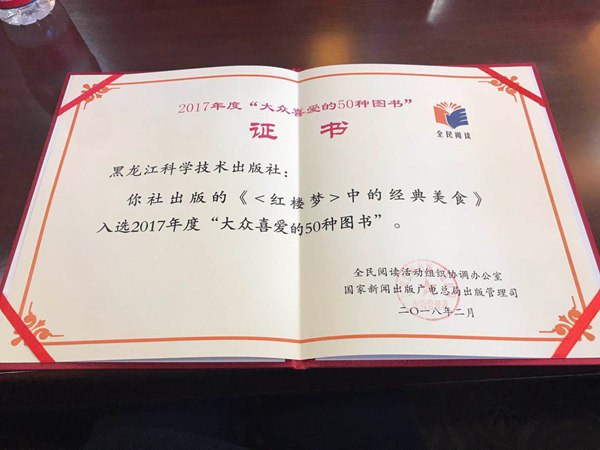 2017年度“大众喜爱的50种图书”
证书
全民阅读
黑龙江科学技术出版社：
你社出版的《<红楼梦>中的经典美食》
入选2017年度“大众喜爱的50种图书”。
全民阅读活动组织协调办公室
国家新闻出版广电总局出版管理司
二〇一八年二月